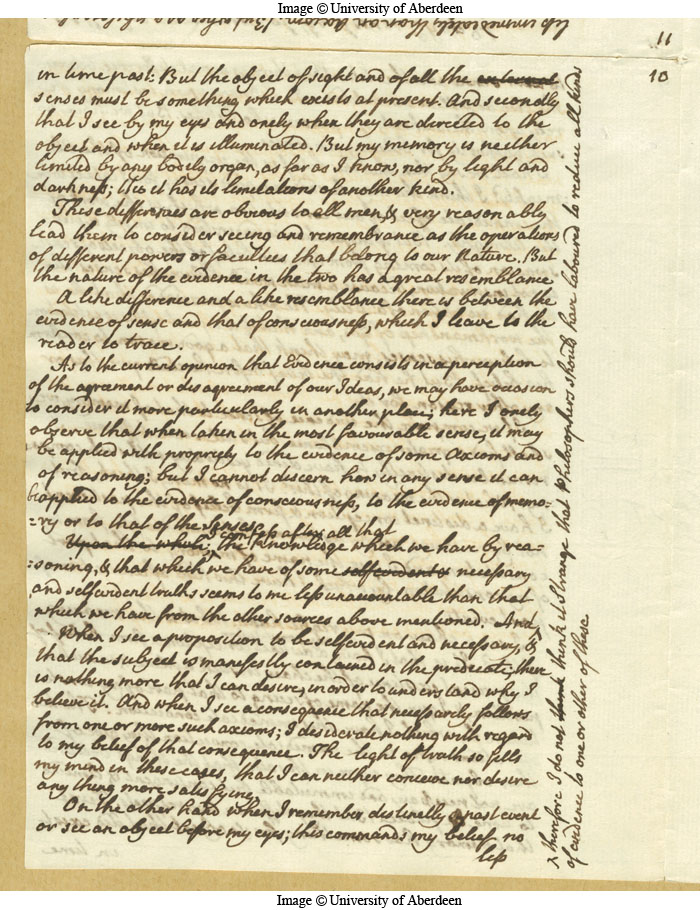 Image © University of Aberdeen
less immediately than an Axiom. But
11
10
in time past: But the object of sight and of all the external
senses must be something which exists at present. And secondly
that I see by my eyes and onely when they are directed to the
object and when it is illuminated. But my memory is neither
limited by any bodely organ, as far as I know, nor by light and
darkness; tho it has its limitations of another kind.
These differences are obvious to all men, & very reasonably
lead them to consider seeing and remembrance as the operations
of different powers or faculties that belong to our Nature. But
the nature of the evidence in the two has a great resemblance
A like difference and a like resemblance there is between the
evidence of sense and that of consciousness, which I leave to the
reader to trace.
As to the current opinion that Evidence consists in a perception
of the agreement or disagreement of our Ideas, we may have occasion
to consider it more particularly in another place; here I onely
observe that when taken in the most favourable sense, it may
be applied with propriety to the evidence of some Axioms and
of reasoning; but I cannot discern how in any sense it can
be applied to the evidence of consciousness, to the evidence of memo-
-ry or to that of the Senses
I confess after all that
Upon the whole, the knowledge which we have by rea-
-soning, & that which we have of some selfevident & necessary
and selfevident truths seems to me less unaccountable than that
which we have from the other sources above mentioned. And
When I see a proposition to be selfevident and necessary, &
that the subject is manifestly contained in the predicate, there
is nothing more that I can desire, in order to understand why I
believe it. And when I see a consequence that necessarly follows
from one or more such axioms; I desiderate nothing with regard
to my belief of that consequence. The light of truth so fills
my mind in these cases, that I can neither conceive nor desire
any thing more satisfying.
On the other hand when I remember distinctly a past event
or see an object before my eyes; this commands my belief no
less
^ therefore I do not think think it Strange that Philosophers should have laboured to reduce all kinds
of evidence to one or other of these
Image © University of Aberdeen